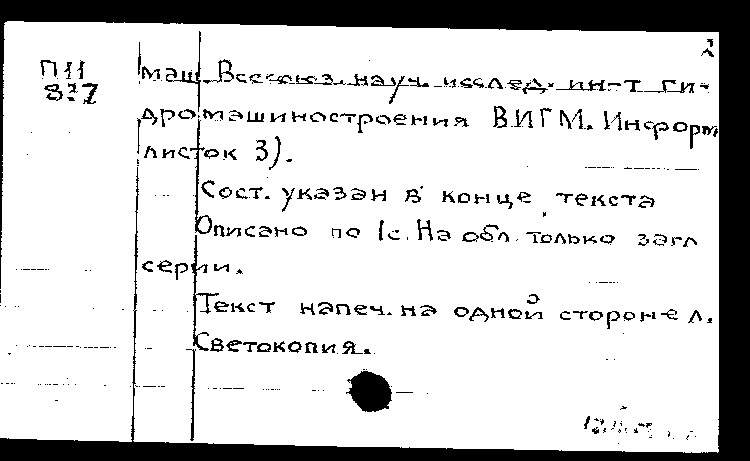 2
П11
837
маш. Всесоюз. науч. исслед. ин-т ги-
дромашиностроения ВИГМ. Информ
листок 3).
Сост. указан в конце текста
Описано по 1с. На обл. только загл
серии.
Текст напеч. на одной стороне л.
Светокопия.